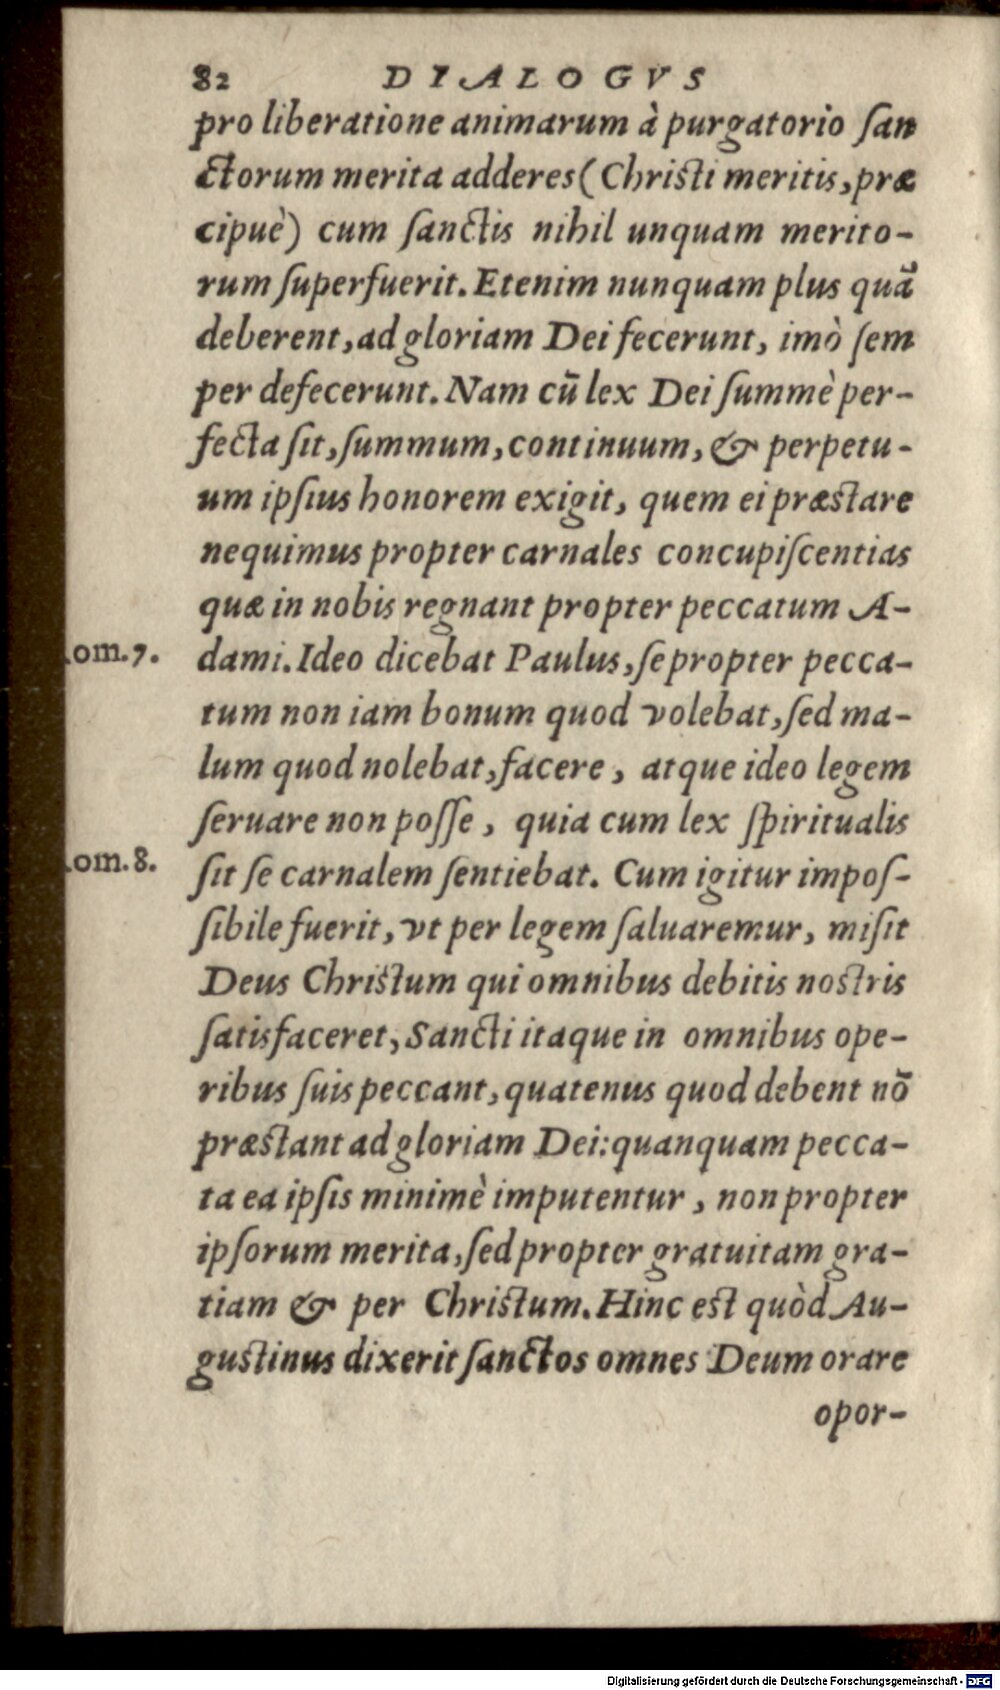 82 DIALOGVS
pro liberatione animarum à purgatorio ſan
ctorum merita adderes (Chriſti meritis, præ
cipuè) cum ſanctis nihil unquam merito-
rum ſuperfuerit. Etenim nunquam plus quã
deberent, ad gloriam Dei fecerunt, imò ſem
per defecerunt. Nam cũ lex Dei ſummè per-
fecta ſit, ſummum, continuum, & perpetu-
um ipſius honorem exigit, quem ei præſtare
nequimus propter carnales concupiſcentias
quæ in nobis regnant propter peccatum A-
om.7. dami. Ideo dicebat Paulus, ſe propter pecca-
tum non iam bonum quod volebat, ſed ma-
lum quod nolebat, facere, atque ideo legem
ſeruare non poſſe, quia cum lex ſpiritualis
om.8. ſit ſe carnalem ſentiebat. Cum igitur impoſ-
ſibile fuerit, vt per legem ſaluaremur, miſit
Deus Chriſtum qui omnibus debitis noſtris
ſatisfaceret, Sancti itaque in omnibus ope-
ribus ſuis peccant, quatenus quod debent nõ
præſtant ad gloriam Dei: quanquam pecca-
ta ea ipſis minimè imputentur, non propter
ipſorum merita, ſed propter gratuitam gra-
tiam & per Chriſtum. Hinc eſt quòd Au-
guſtinus dixerit ſanctos omnes Deum orare
opor-
Digitalisierung gefördert durch die Deutsche Forschungsgemeinschaft - DFG